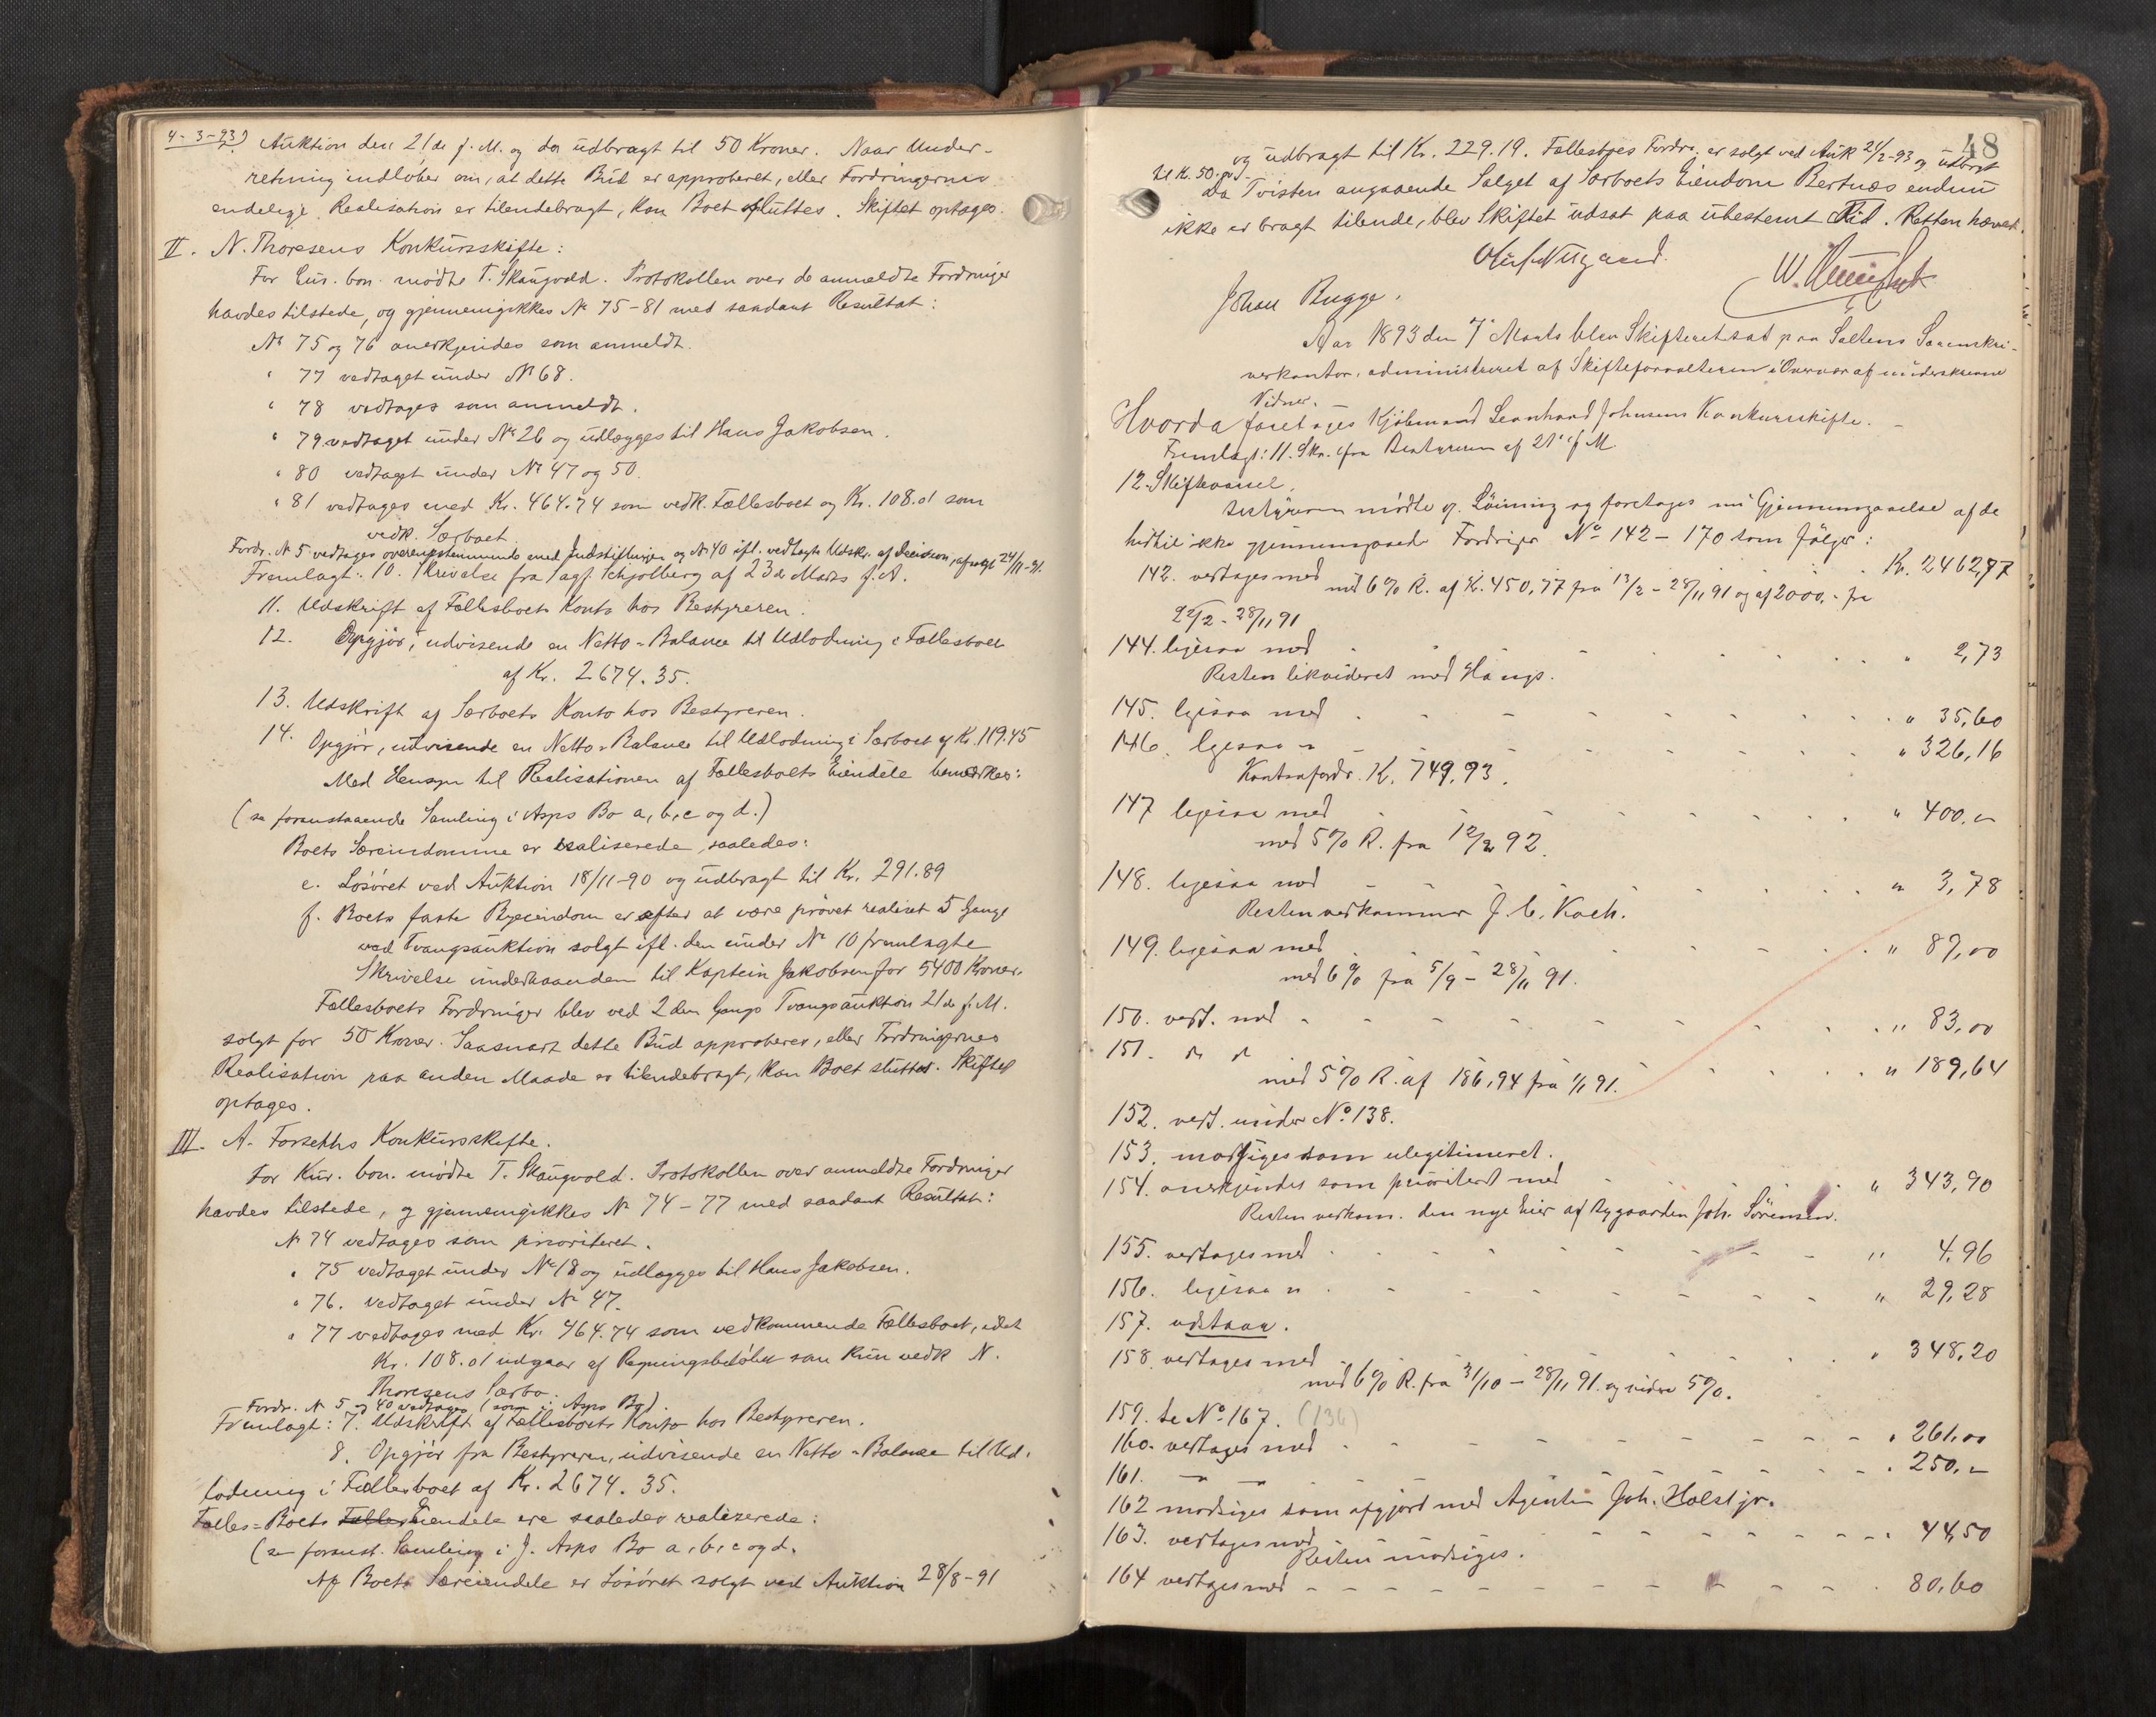 4-3-93)
Auktion den 21de f. M. og da udbragt til 50 Kroner. Naar Under-
retning indløber om, at dette Bud er approberet, eller Fordringernes
endelige Realisation er tilendebragt, kan Boet sluttes. Skiftet optages.
II. N. Thoresens Konkursskifte:
For Cur. bon. mødte T. Skaugvold. Protokollen over de anmeldte Fordringer
havdes tilstede, og gjennemgikkes No 75-81 med saadant Resultat:
No 75 og 76 anerkjendes som anmeldt.
" 77 vedtaget under No 68.
" 78 vedtages som anmeldt.
" 79 vedtaget under No 26 og udlægges til Hans Jakobsen.
" 80 vedtaget under No 47 og 50.
" 81 vedtages med Kr. 464.74 som vedk. Fællesboet og Kr. 108.01 som
vedk. Særboet.
Fordr. No 5 vedtages overensstemmende med Indstillingen og No 40 ifl. vedtagte Udskr. af Decision, afsagt 24/11-91.
Fremlagt: 10. Skrivelse fra Sagf. Schjølberg af 23de Marts f. A.
11. Udskrift af Fællesboets Konto hos Bestyreren.
12. Opgjør, udvisende en Netto-Balance til Udlodning i Fællesboet
af Kr. 2674.35.
13. Udskrift af Særboets Konto hos Bestyreren.
14. Opgjør, udvisende en Netto-Balance til Udlodning i Særboet af Kr. 119.45
Med Hensyn til Realisationen af Fællesboets Eiendele bemærkes:
(se foranstaaende Samling i Asps Bo a, b, c og d.)
Boets Særeiendomme er realiserede saaledes:
e. Løsøret ved Auktion 18/11-90 og udbragt til Kr. 291.89
f. Boets faste Byeiendom er efter at være prøvet realiset 5 Gange
ved Tvangsauktion solgt ifl. den under No 10 fremlagte
Skrivelse underhaanden til Kaptein Jakobsen for 5400 Kroner.
Fællesboets Fordringer blev ved 2den Gangs Tvangsauktion 21de f. M.
solgt for 50 Kroner. Saasnart dette Bud approberes, eller Fordringernes
Realisation paa anden Maade er tilendebragt, kan Boet sluttes. Skiftet
optages.
III. A. Forseths Konkursskifte.
For Kur. bon. mødte T. Skaugvold. Protokollen over anmeldte Fordringer
havdes tilstede, og gjennemgikkes No 74-77 med saadant Resultat:
No 74 vedtages som prioriteret.
" 75 vedtaget under No 18 og udlægges til Hans Jakobsen.
" 76. vedtaget under No 47.
" 77 vedtages med Kr. 464.74 som vedkommende Fællesboet, idet
Kr. 108.01 udgaar af Regningsbeløbet som kun vedk N.
Thoresens Særbo.
Fordr. No 5 og 40 vedtages (som i Asps Bo).
Fremlagt: 7. Udskrift af Fællesboets Konto hos Bestyreren.
8. Opgjør fra Bestyreren, udvisende en Netto-Balance til Ud-
lodning i Fællesboet af Kr. 2674.35.
Fælles-Boets Fælles Eiendele ere saaledes realiserede:
(se foranst. Samling i J. Asps Bo a, b, c og d.
Af Boets Særeiendele er Løsøret solgt ved Auktion 28/8-91
48
og udbragt til Kr. 229.19. Fællesboets Fordr. er solgt ved Auk 21/2-93 og udbragt
til K. 50.
Da Tvisten angaaende Salget af Særboets Eiendom Bertnæs endnu
ikke er bragt tilende, blev Skiftet udsat paa ubestemt Tid. Retten hævet.
Johan Bugge.
Aar 1893 den 7' Marts blev Skifteret sat paa Saltens Sorenskri-
verkontor, administreret af Skifteforvalteren i Overvær af underskrevne
Vidner.
Hvorda foretages Kjøbmand Leonhard Johnsens Konkursskifte.
Fremlagt: 11. Skr. fra Bestyreren af 21' f M.
12. Skiftevarsel.
Bestyreren mødte og foretages nu Gjennemgaaelse af de
hidtil ikke gjennemgaaede Fordringer No 142-170 som følger:
142. vedtages med Kr. 2462,77
med 6% R. af K. 450,77 fra 13/2-28/11 91 og af 2000,- fra
22/2-28/11 91
144. ligesaa med " 2,73
Resten likvideret med Haugs.
145. ligesaa med " 35,60
146. ligesaa " " 326,16
Kontrafordr. K. 749,93.
147 ligesaa med " 400.-
med 5% R. fra 12/2 92.
148. ligesaa med " 3,78
Resten vedkommer J. C. Koch.
149. ligesaa med " 87,00
med 6% fra 5/9-28/11 91.
150. vedt. med " 83,00
151. " " " 189,64
med 5% R. af 186,94 fra 1/1 91.
152. vedt. under No 138.
153. modsiges som ulegitimeret.
154. anerkjendes som prioriteret med " 343,90
Resten vedkom. den nye Eier af Bygaarden Joh. Sørensen.
155. vedtages med " 4,96
156. ligesaa " " 29,28
157. udstaar.
158. vedtages med " 348,20
med 6% R. fra 31/10-28/11 91 og videre 5%.
159. se No 167. (136)
160. vedtages med " 261,00
161. " " 250,-
162 modsiges som afgjort med Agenten Joh. Holst jr.
163. vedtages med " 44,50
Resten modsiges.
164 vedtages med 80,60